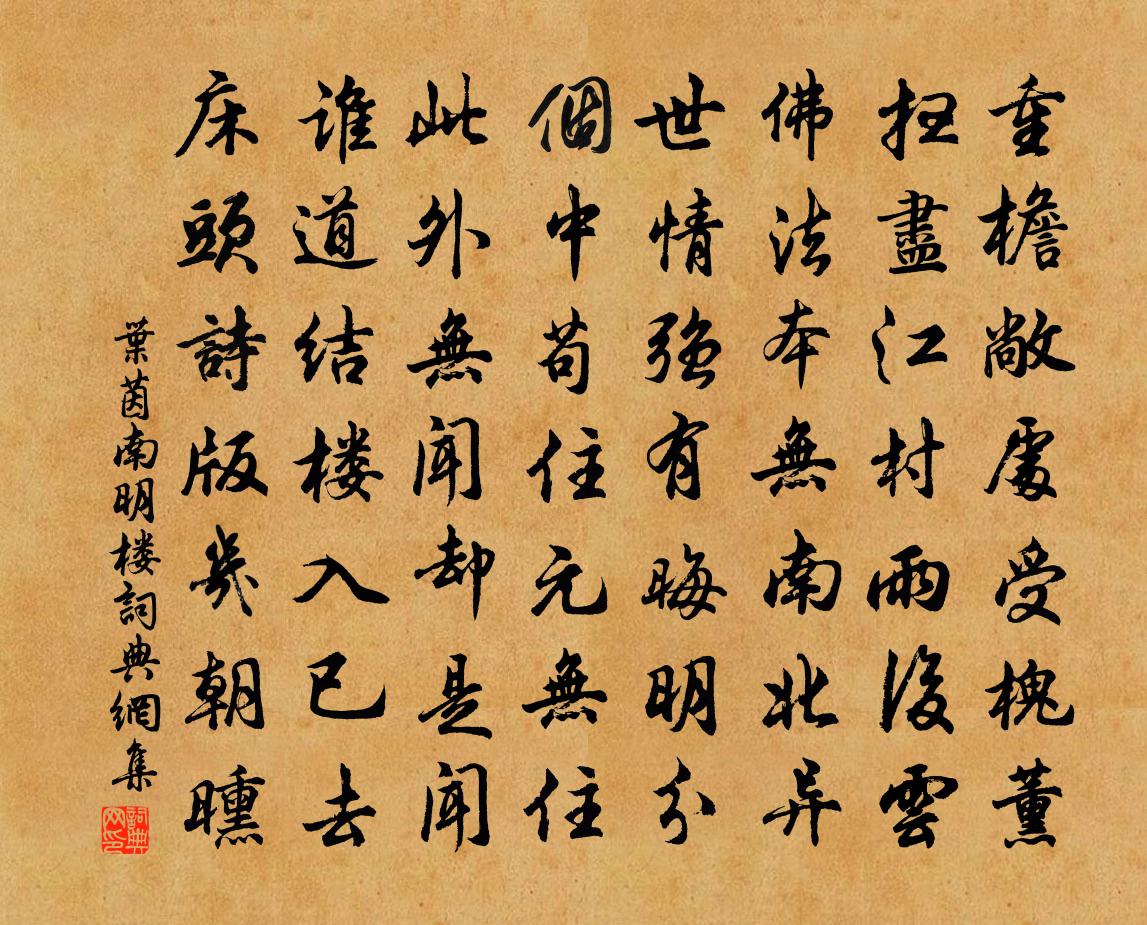 重檐敞處受槐薰
扫盡江村雨後雲
佛法本無南北异
世情強有晦明分
個中苟住元無住
此外無聞却是聞
誰道结楼入已去
床頭詩版幾朝曛
葉茵南明楼詞典網集
詞典網印